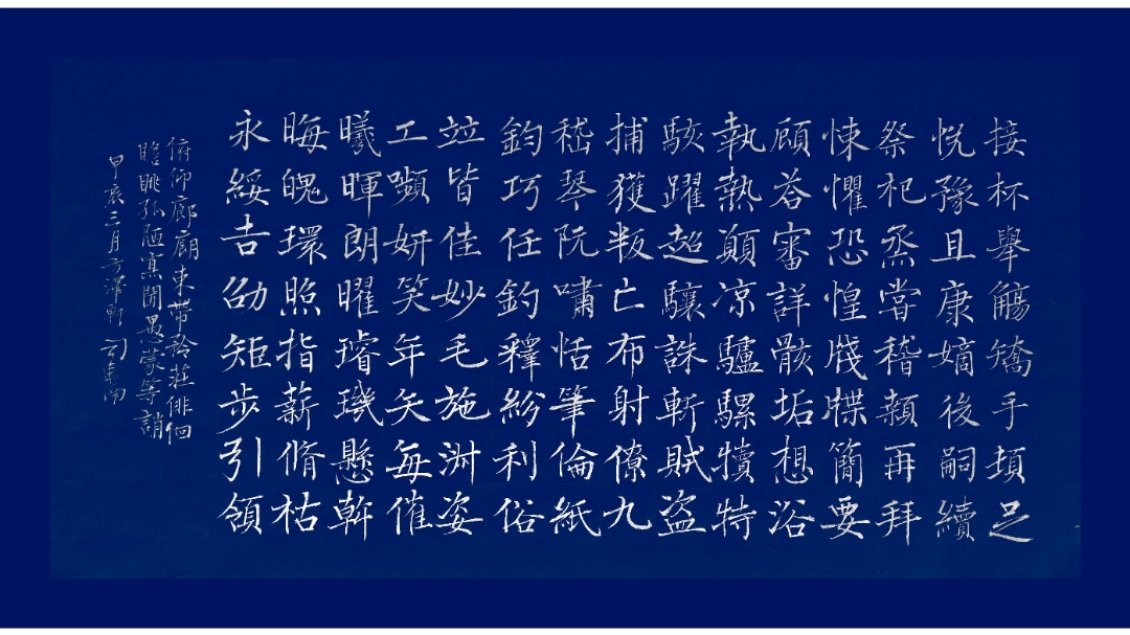 接杯舉觴矯手頓足
悅豫且康嫡後嗣續
祭祀烝嘗稽顙再拜
悚懼恐惶牋牒簡要
顧答審詳骸垢想浴
執熱願凉驢騾犢特
駭躍超驤誅斬賊盜
捕獲叛亡布射僚九
嵇琴阮嘯恬筆倫紙
鈞巧任釣釋紛利俗
竝皆佳妙毛施淑姿
工嚬妍笑年矢每催
曦暉朗曜璿璣懸斡
晦魄環照指薪脩祜
永綏吉劭矩步引領
俯仰廊廟束帶矜莊徘徊
瞻眺孤陋寡聞愚蒙等誚
三月